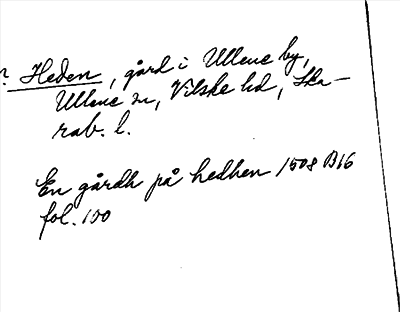 ? Heden, gård i Ullene by,
Ullene sn, Vilske hd, Ska-
rab. l.
En gårdh på hedhen 1508 B16
fol. 100